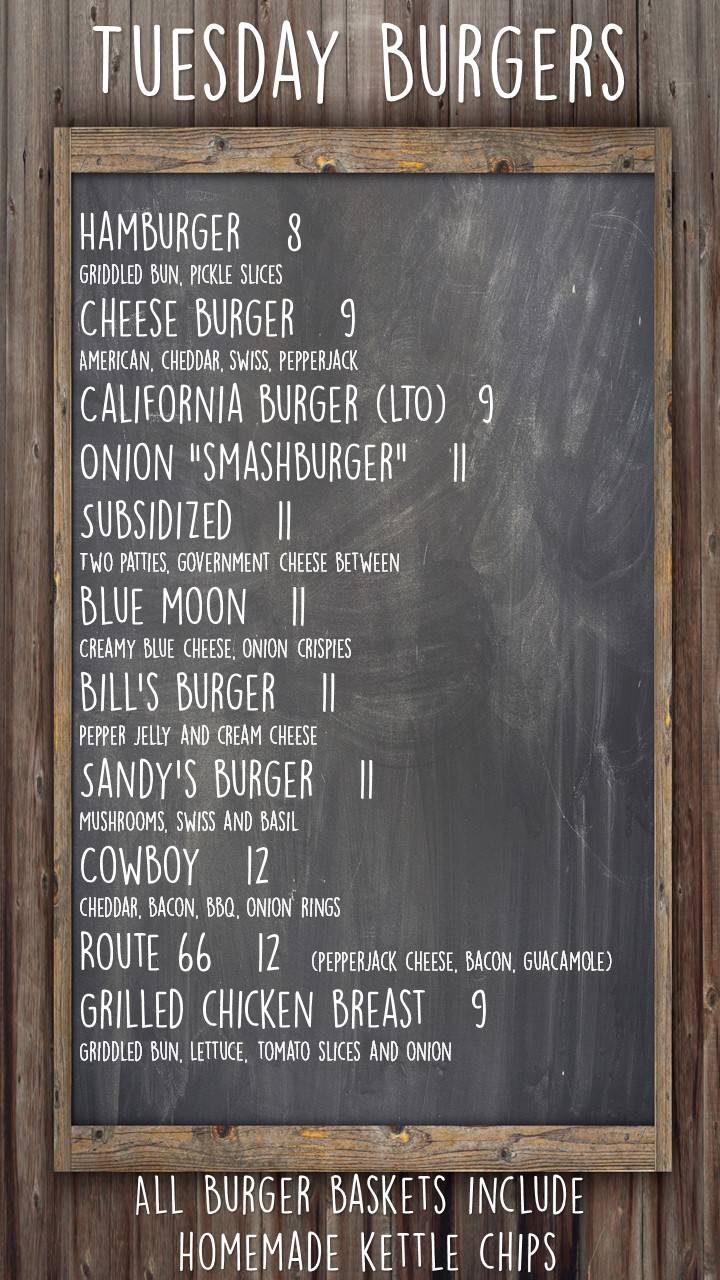 TUESDAY BURGERS
HAMBURGER 8
GRIDDLED BUN, PICKLE SLICES
CHEESE BURGER 9
AMERICAN, CHEDDAR, SWISS, PEPPERJACK
CALIFORNIA BURGER (LTO) 9
ONION "SMASHBURGER" 11
SUBSIDIZED 11
TWO PATTIES, GOVERNMENT CHEESE BETWEEN
BLUE MOON 11
CREAMY BLUE CHEESE, ONION CRISPIES
BILL'S BURGER 11
PEPPER JELLY AND CREAM CHEESE
SANDY'S BURGER 11
MUSHROOMS, SWISS AND BASIL
COWBOY 12
CHEDDAR, BACON, BBQ, ONION RINGS
ROUTE 66 12 (PEPPERJACK CHEESE, BACON, GUACAMOLE)
GRILLED CHICKEN BREAST 9
GRIDDLED BUN, LETTUCE, TOMATO SLICES AND ONION
ALL BURGER BASKETS INCLUDE
HOMEMADE KETTLE CHIPS